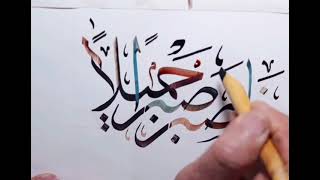 فاصبر صبرا جميلا